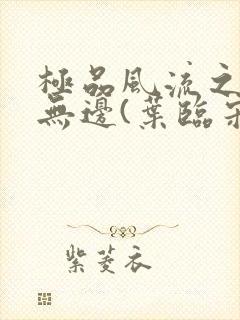 極品風流之
無邊(葉臨
紫菱衣